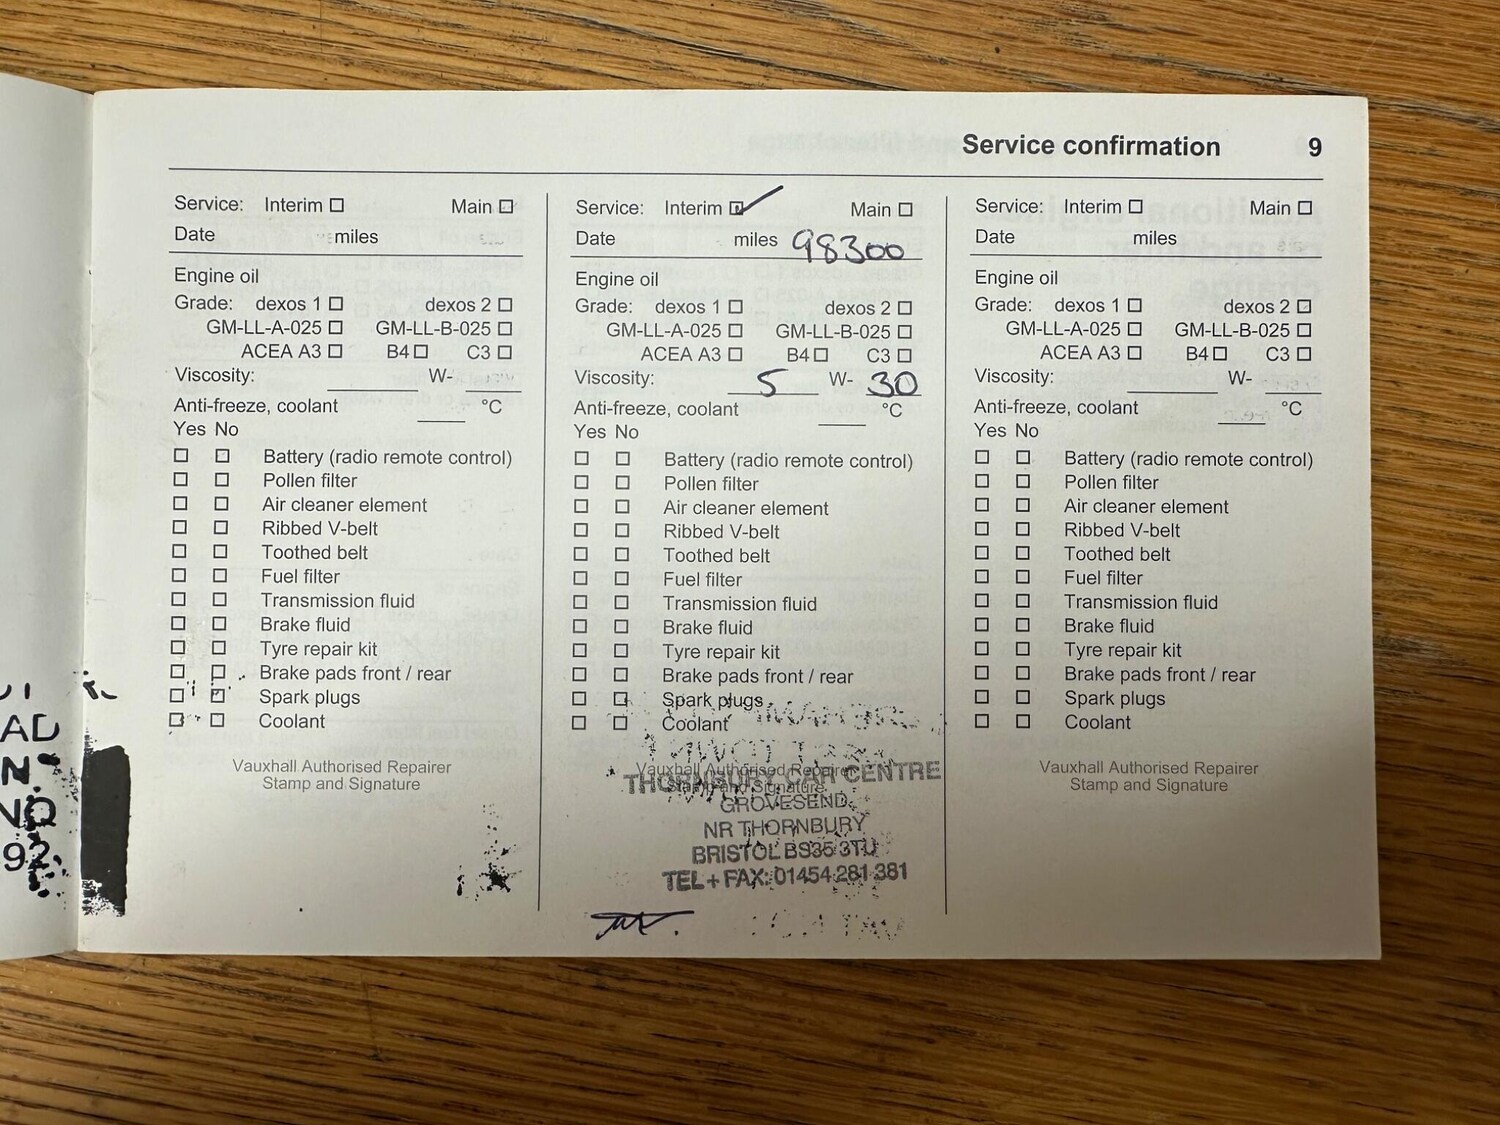 Service confirmation 9
Service: Interim Main
Date miles
Engine oil
Grade: dexos 1 dexos 2
GM-LL-A-025 GM-LL-B-025
ACEA A3 B4 C3
Viscosity: W-
Anti-freeze, coolant °C
Yes No
Battery (radio remote control)
Pollen filter
Air cleaner element
Ribbed V-belt
Toothed belt
Fuel filter
Transmission fluid
Brake fluid
Tyre repair kit
Brake pads front / rear
Spark plugs
Coolant
Vauxhall Authorised Repairer
Stamp and Signature
Service: Interim Main
Date miles 98300
Engine oil
Grade: dexos 1 dexos 2
GM-LL-A-025 GM-LL-B-025
ACEA A3 B4 C3
Viscosity: 5 W- 30
Anti-freeze, coolant °C
Yes No
Battery (radio remote control)
Pollen filter
Air cleaner element
Ribbed V-belt
Toothed belt
Fuel filter
Transmission fluid
Brake fluid
Tyre repair kit
Brake pads front / rear
Spark plugs
Coolant
Vauxhall Authorised Repairer
Stamp and Signature
THORNBURY CAR CENTRE
GROVESEND
NR THORNBURY
BRISTOL BS35 3TU
TEL + FAX: 01454 281 381
Service: Interim Main
Date miles
Engine oil
Grade: dexos 1 dexos 2
GM-LL-A-025 GM-LL-B-025
ACEA A3 B4 C3
Viscosity: W-
Anti-freeze, coolant °C
Yes No
Battery (radio remote control)
Pollen filter
Air cleaner element
Ribbed V-belt
Toothed belt
Fuel filter
Transmission fluid
Brake fluid
Tyre repair kit
Brake pads front / rear
Spark plugs
Coolant
Vauxhall Authorised Repairer
Stamp and Signature